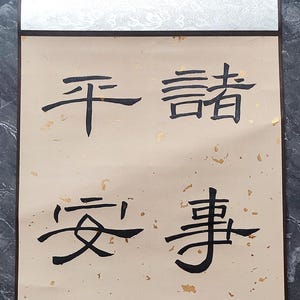 諸事
平安